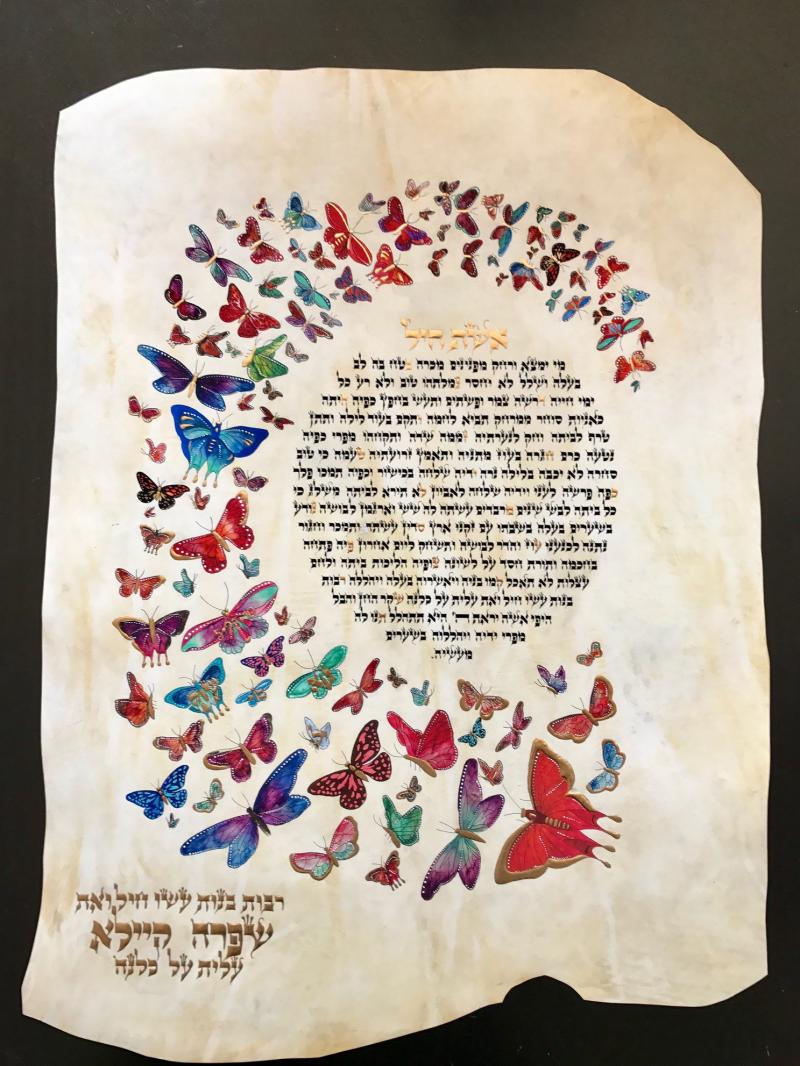 אשת חיל
מי ימצא ורחק מפנינים מכרה בטח בה לב
בעלה ושלל לא יחסר גמלתהו טוב ולא רע כל
ימי חייה דרשה צמר ופשתים ותעש בחפץ כפיה היתה
כאניות סוחר ממרחק תביא לחמה ותקם בעוד לילה ותתן
טרף לביתה וחק לנערתיה זממה שדה ותקחהו מפרי כפיה
נטעה כרם חגרה בעוז מתניה ותאמץ זרועתיה טעמה כי טוב
סחרה לא יכבה בלילה נרה ידיה שלחה בכישור וכפיה תמכו פלך
כפה פרשה לעני וידיה שלחה לאביון לא תירא לביתה משלג כי
כל ביתה לבש שנים מרבדים עשתה לה שש וארגמן לבושה נודע
בשערים בעלה בשבתו עם זקני ארץ סדין עשתה ותמכר וחגור
נתנה לכנעני עוז והדר לבושה ותשחק ליום אחרון פיה פתחה
בחכמה ותורת חסד על לשונה צופיה הליכות ביתה ולחם
עצלות לא תאכל קמו בניה ויאשרוה בעלה ויהללה רבות
בנות עשו חיל ואת עלית על כלנה שקר החן והבל
היפי אשה יראת ה׳ היא תתהלל תנו לה
מפרי ידיה ויהללוה בשערים
מעשיה.
רבות בנות עשו חיל ואת
שפרה היילא
עלית על כלנה